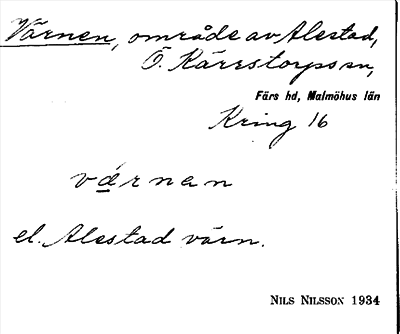 Värnen, område av Alestad,
Ö. Kärrstorps sn,
Färs hd, Malmöhus län
Kring 16
värnan
el. Alestad värn.
NILS NILSSON 1934